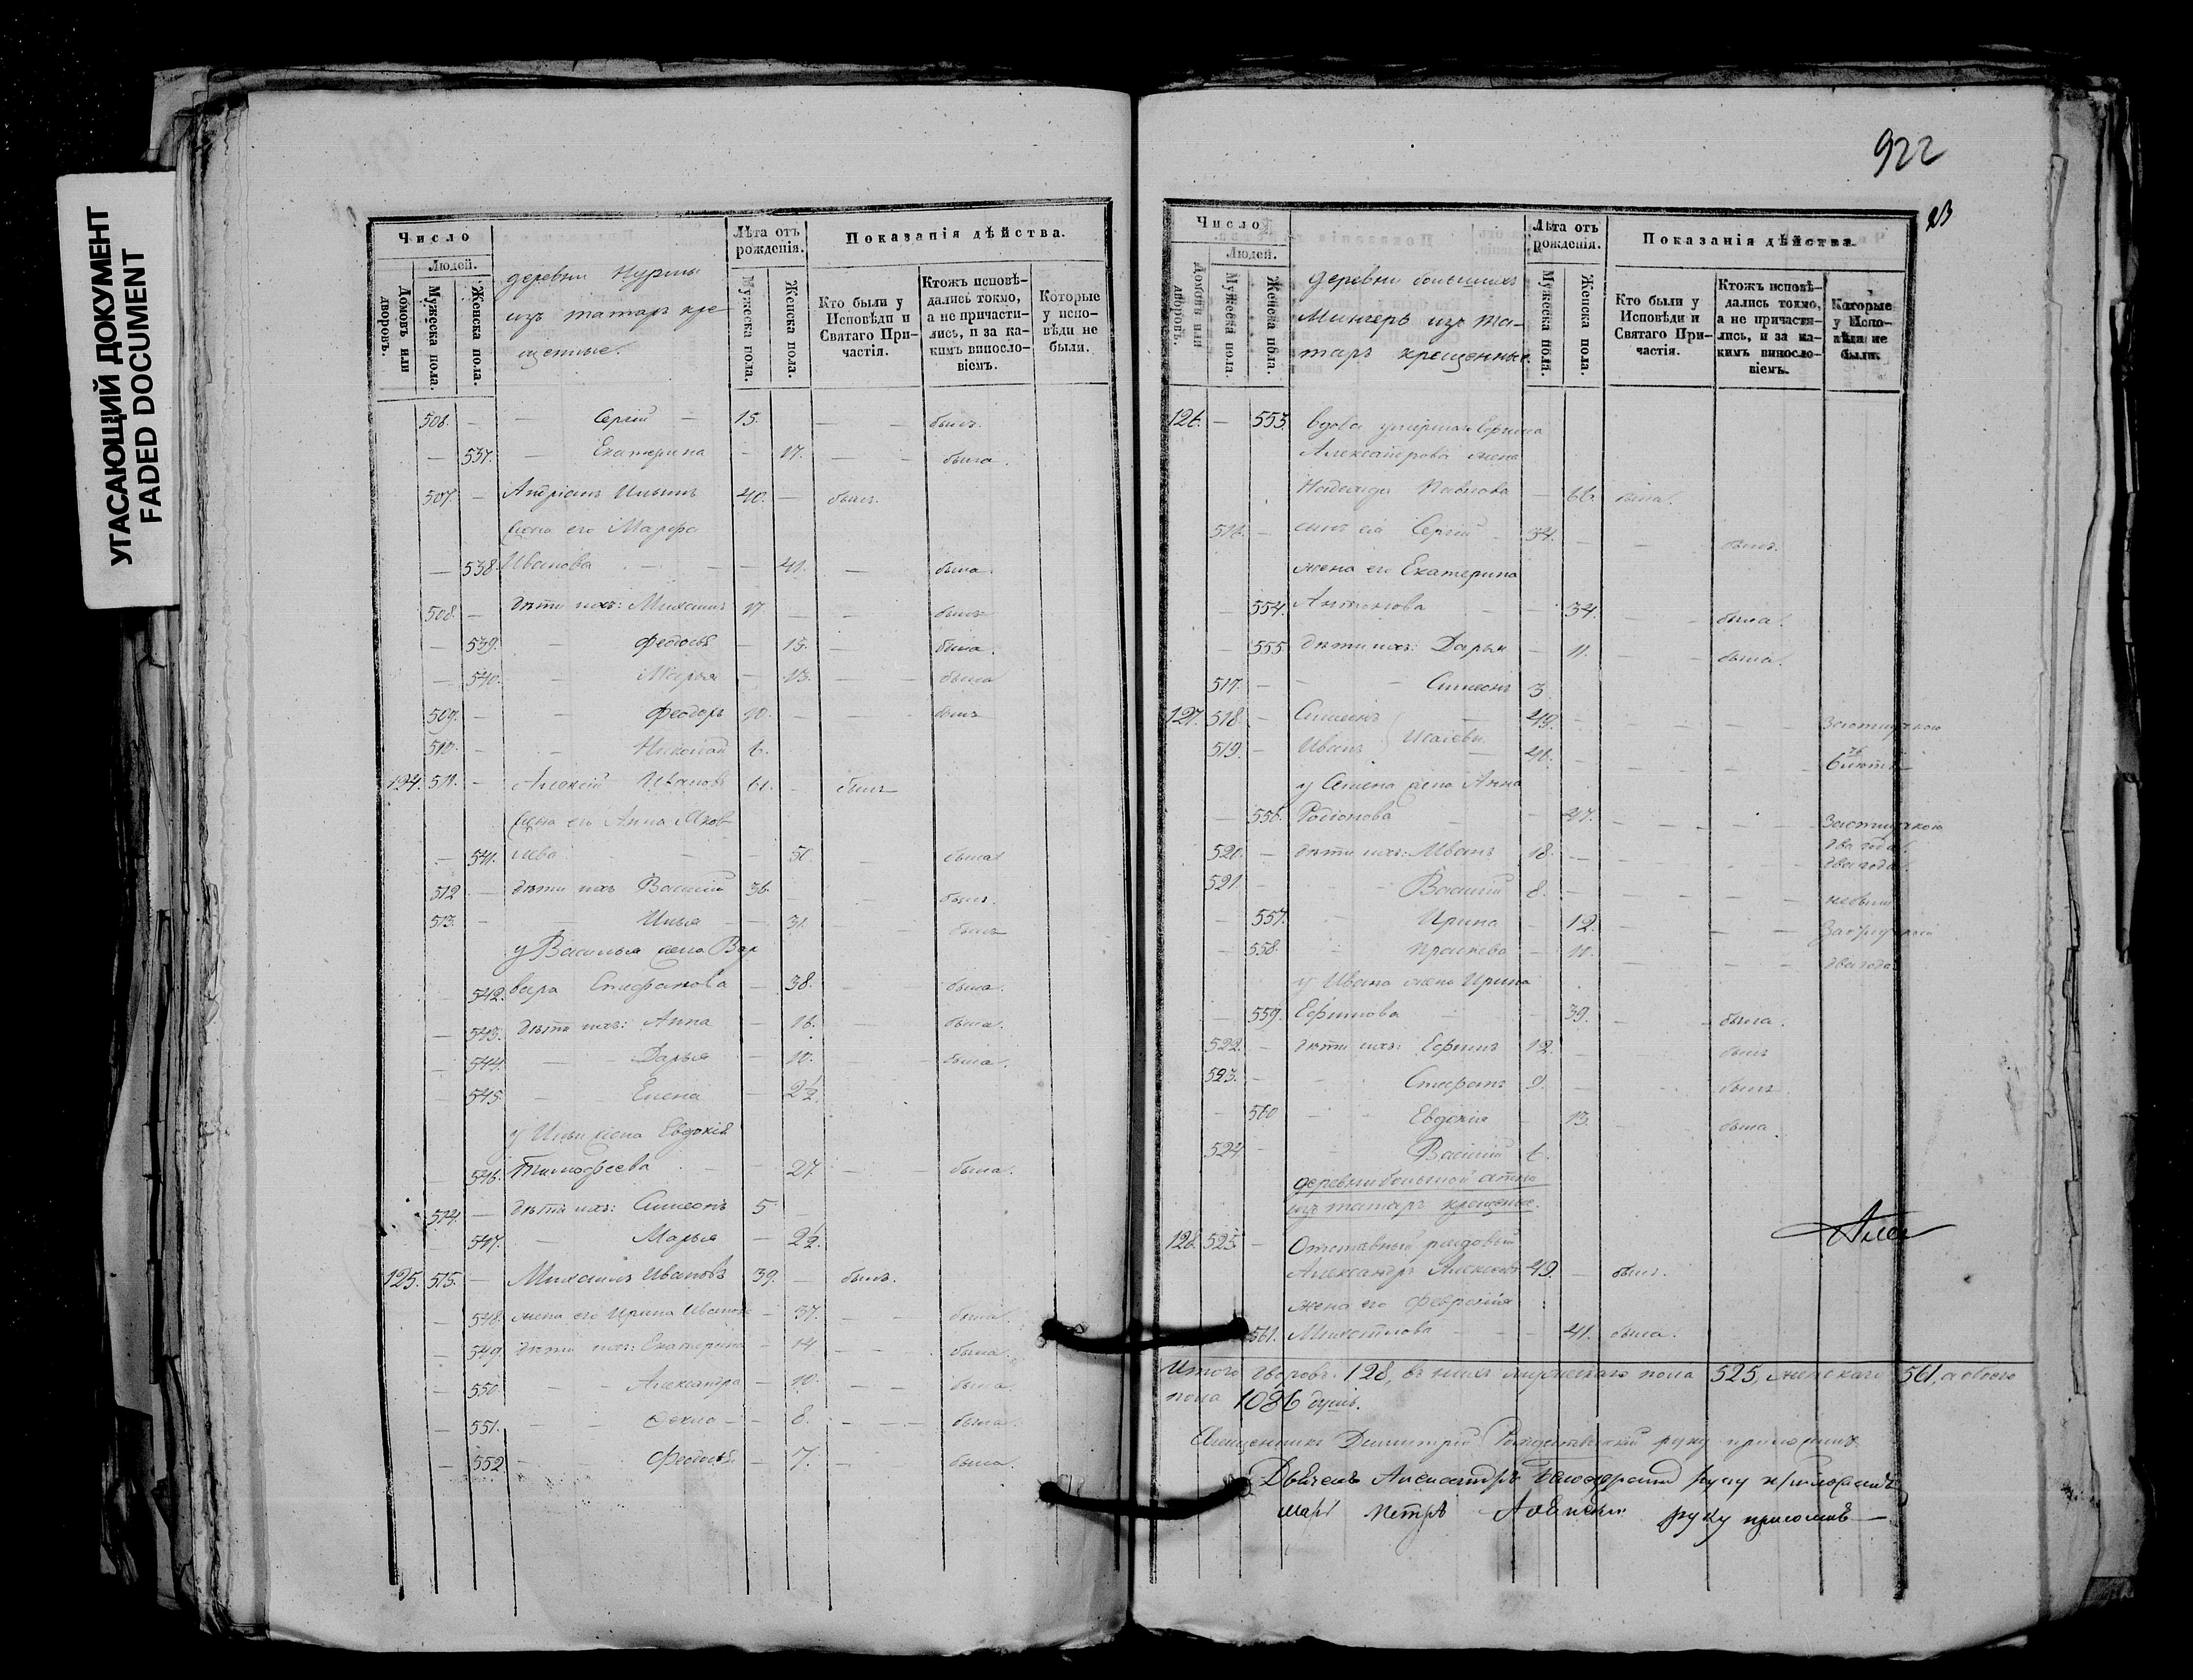 УГАСАЮЩИЙ ДОКУМЕНТ
FADED DOCUMENT
Число
Людей.
Домовъ или дворовъ.
Мужеска пола.
Женска пола.
деревни Нурмы
изъ татаръ кре-
щенные.
Лѣта отъ рожденія.
Мужеска пола.
Женска пола.
Показанія дѣйства.
Кто были у Исповѣди и Святаго При-частія.
Ктожъ исповѣ-дались токмо, а не причасти-лись, и за ка-кимъ винословіемъ.
Которые у испо-вѣди не были.
506. — — Сергій — 15. — — былъ.
— 537. — Екатерина — 17. — — была.
507. — Андріанъ Ильинъ 40. — былъ.
жена его Марфа
— 538. Иванова — — — 41. — была.
508. — дѣти ихъ: Михаилъ 17. — — былъ
— 539. — Феодосья — 15. — была.
— 540. — Марья — 13. — — была
509. — — Феодоръ 10. — — былъ
510. — — Николай 6.
124. 511. — Алексій Ивановъ 61. — былъ
жена его Анна Яков-
— 541. лева — — — 51. — была
512 — дѣти ихъ Василій 36. — — былъ.
513. — — Илья — 31. — — былъ
у Василья жена Вар
542. вара Стефанова — 38. — была.
— 543. дѣти ихъ: Анна — 16. — была.
— 544. — Дарья — 10. — — была.
— 545. — — Елена — 2½.
у Ильи жена Евдокія
546. Тимофеева — — 27. — — была.
514. — дѣти ихъ: Симеонъ 5. —
547. — Марья — 2½.
125. 515. — Михаилъ Ивановъ 39. — былъ.
— 548. жена его Ирина Иванова — 37. — — была.
— 549. дѣти ихъ: Екатерина — 14 — — была.
— 550. — — Александра — 10. — — была.
— 551. — — Фекла — — 8. — — — была.
— 552. — — Феодосья. — 7. — была.
922
Число
Людей.
Домовъ или дворовъ.
Мужеска пола.
Женска пола.
деревни большихъ
Мингеръ изъ та-
таръ крещенные.
Лѣта отъ рожденія.
Мужеска пола.
Женска пола.
Показанія дѣйства.
Кто были у Исповѣди и Святаго При-частія.
Ктожъ исповѣ-дались токмо, а не причасти-лись, и за ка-кимъ винословіемъ.
Которые у Испо-вѣди не были.
126. — 553. вдова умершаго Сергина
Александрова жена
Надежда Павлова 66. была.
516. — сынъ ея Сергій — 34. — — былъ.
жена его Екатерина
— 554. Антонова — — 34. — — была.
— 555 дѣти ихъ: Дарья — 11. — — была.
517. — — Симеонъ 3.
127. 518. — Симеонъ — 49. — — —
519. — Иванъ Исаевы — 41. — — — 6 лѣтъ
у Семена жена Анна
— 556. Родіонова — — 47. — — — —
два года.
520. — дѣти ихъ: Иванъ 18. — — — — два года.
521. — — Василій 8. — — — — не былъ
— 557. — Ирина — 12. — — —
— 558. — Прасковья — 10. — — — два года.
у Ивана жена Ирина
— 559. Ефимова — — 39. — — была.
522. — дѣти ихъ: Ефимъ 12. — — былъ
523. — — Стефанъ 9. — — былъ
— 560 — — Евдокія — 13. — — была.
524. — — Василій 6.
деревни большой атни
изъ татаръ крещеные.
128. 525. — Отставный рядовый
Александръ Алексѣевъ 49. — былъ.
жена его Феврония
561. Михайлова — — — 41. была.
Итого дворовъ. 128, въ нихъ мужескаго пола 525, женскаго 561, а обоего
пола 1086 душъ.
Священникъ Димитрій Рождественскій руку приложилъ
Дьяконъ Александръ руку приложилъ
Петръ руку приложилъ —